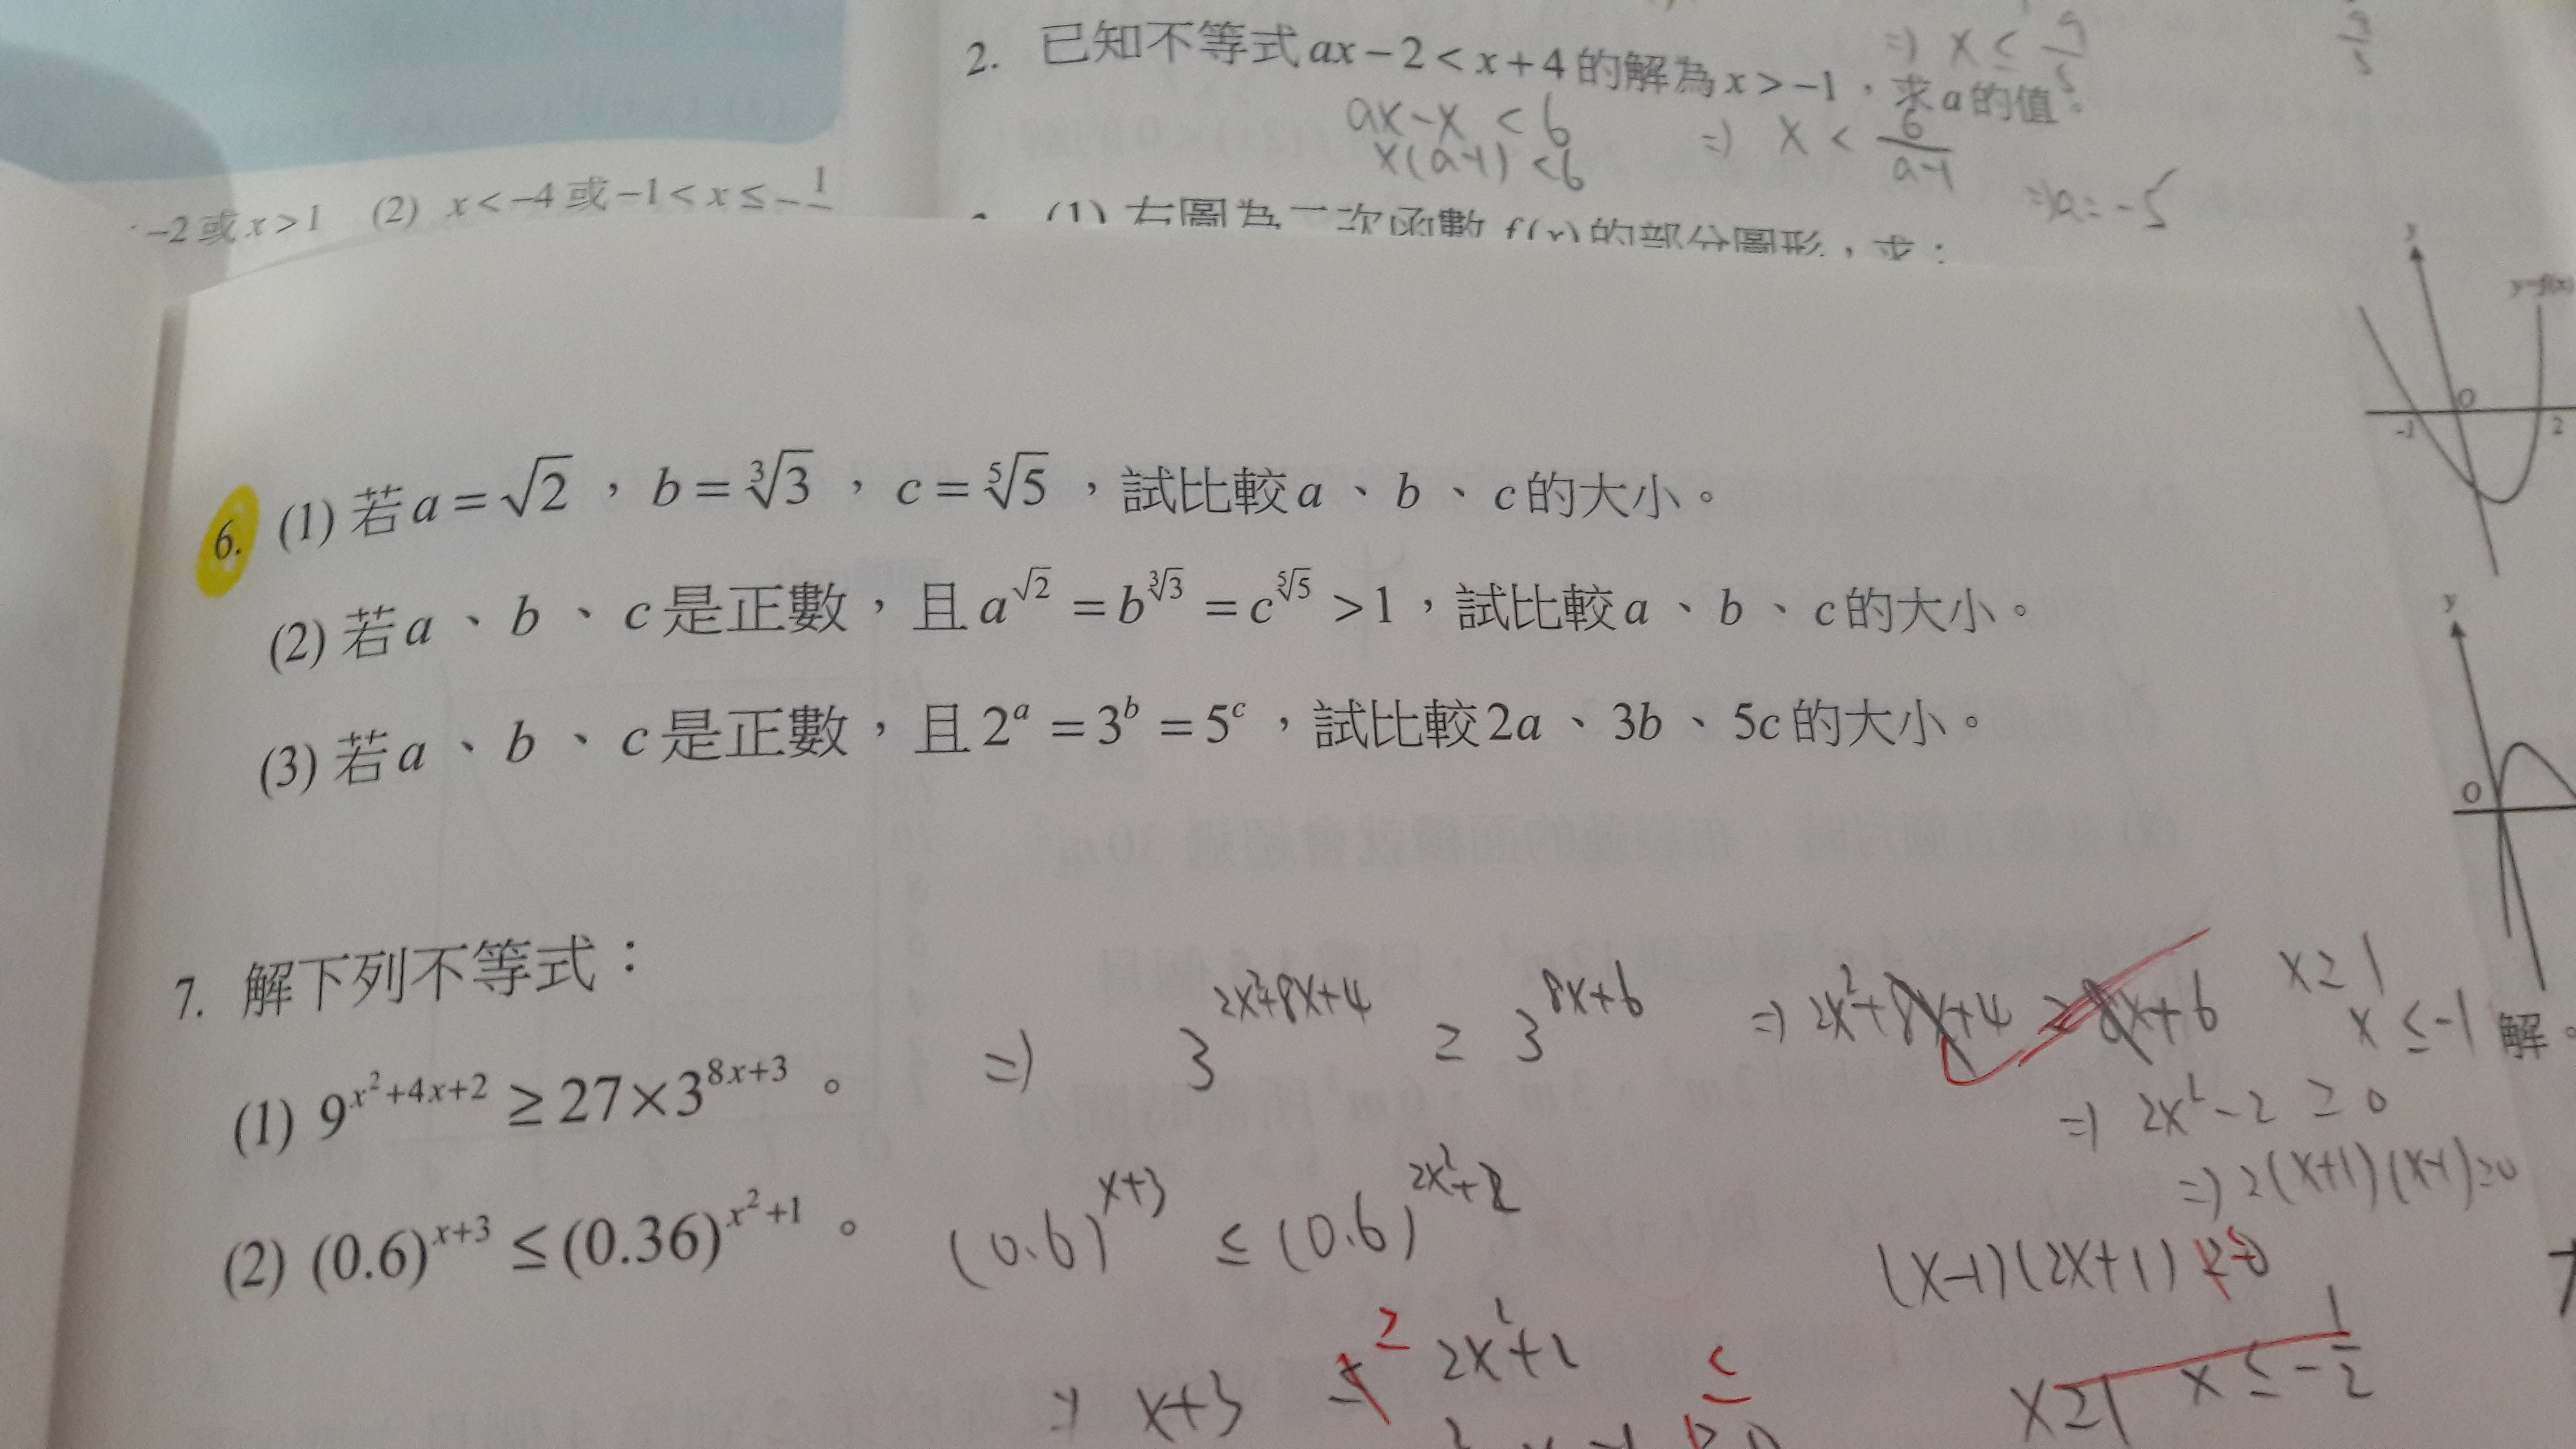 2. 已知不等式 ax−2<x+4 的解為 x>−1,求 a 的值。
⇒ x ≤ 9/5
9/5
ax−x <6 ⇒ x < 6/(a−1)
x(a−1) <6
⇒a=−5
−2 或 x>1 (2) x<−4 或 −1<x≤−
(1) 右圖為二次函數 f(x) 的部分圖形,求:
y
y=f(x)
O
−1
2
6. (1) 若 a=√2,b=∛3,c=⁵√5,試比較 a、b、c 的大小。
(2) 若 a、b、c 是正數,且 a^√2 = b^∛3 = c^⁵√5 >1,試比較 a、b、c 的大小。
(3) 若 a、b、c 是正數,且 2^a = 3^b = 5^c,試比較 2a、3b、5c 的大小。
y
O
7. 解下列不等式:
⇒ 3^(2x²+8x+4) ≥ 3^(8x+6) ⇒ 2x²+8x+4 ≥ 8x+6
x≥1
x ≤−1
解。
(1) 9^(x²+4x+2) ≥ 27×3^(8x+3)。
⇒ 2x²−2 ≥ 0
⇒ 2(x+1)(x−1)≥0
(2) (0.6)^(x+3) ≤ (0.36)^(x²+1)。
(0.6)^(x+3) ≤ (0.6)^(2x²+2)
(x−1)(2x+1)
⇒ x+3 ≥ 2x²+2
≤
x≥1 x ≤ −1/2